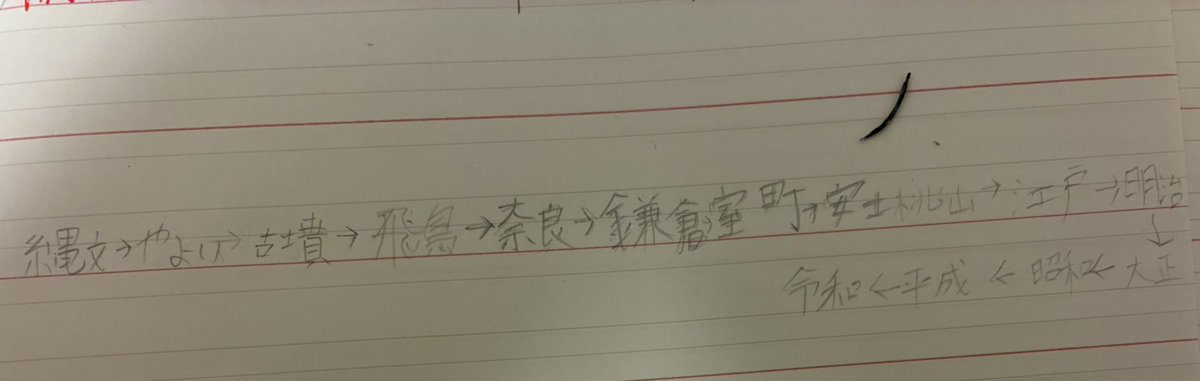 縄文→やよい→古墳→飛鳥→奈良→鎌倉室町→安土桃山→江戸→明治
↓
大正
→昭和→平成→令和